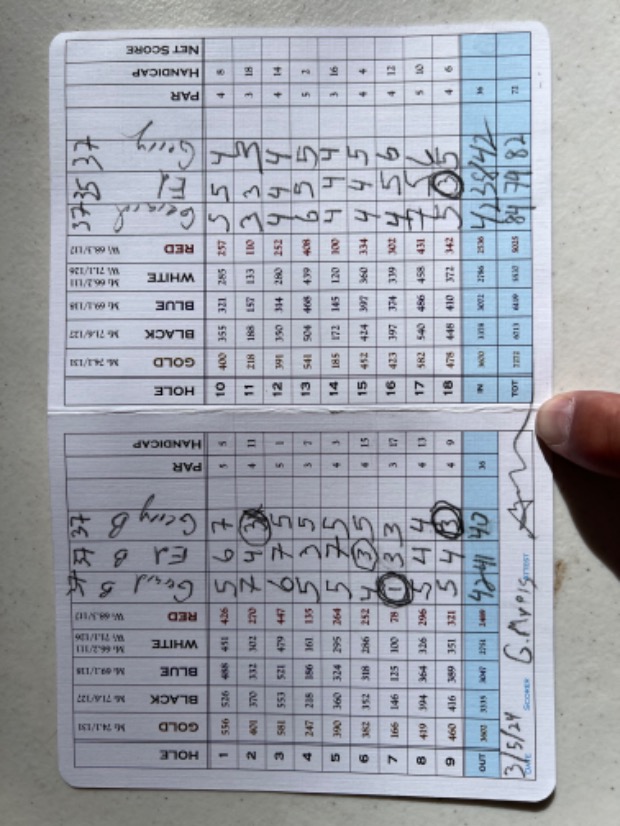 HOLE 1 2 3 4 5 6 7 8 9 OUT
M: 74.1/131 GOLD 556 401 581 247 390 382 166 419 460 3602
M: 71.6/127 BLACK 526 370 553 218 360 352 146 394 416 3335
M: 69.1/118 BLUE 488 332 521 186 324 318 125 364 389 3047
M: 66.2/111 W: 71.1/126 WHITE 451 302 479 161 295 286 100 326 351 2751
W: 68.3/117 RED 426 270 447 135 264 252 78 296 321 2489
37 Gerard B 5 7 6 5 5 4 1 5 5 42
37 Ed B 6 4 7 3 7 3 3 4 4 41
37 Gerry B 7 3 5 5 5 5 3 4 3 40
PAR 5 4 5 3 4 4 3 4 4 36
HANDICAP 5 11 1 7 3 15 17 13 9
DATE 3/5/24 SCORER G. Myers ATTEST
HOLE 10 11 12 13 14 15 16 17 18 IN TOT
M: 74.1/131 GOLD 400 218 391 541 185 452 423 582 478 3670 7272
M: 71.6/127 BLACK 355 188 350 504 172 424 397 540 448 3378 6713
M: 69.1/118 BLUE 321 157 314 468 145 397 374 486 410 3072 6119
M: 66.2/111 W: 71.1/126 WHITE 285 133 280 439 120 360 339 458 372 2786 5537
W: 68.3/117 RED 257 110 252 408 100 334 302 431 342 2536 5025
37 Gerard 5 3 4 6 4 4 4 7 5 42 84
35 Ed 5 3 4 5 4 4 5 5 3 38 79
37 Gerry 4 3 4 5 4 5 6 6 5 42 82
PAR 4 3 4 5 3 4 4 5 4 36 72
HANDICAP 8 18 14 2 16 4 12 10 6
NET SCORE